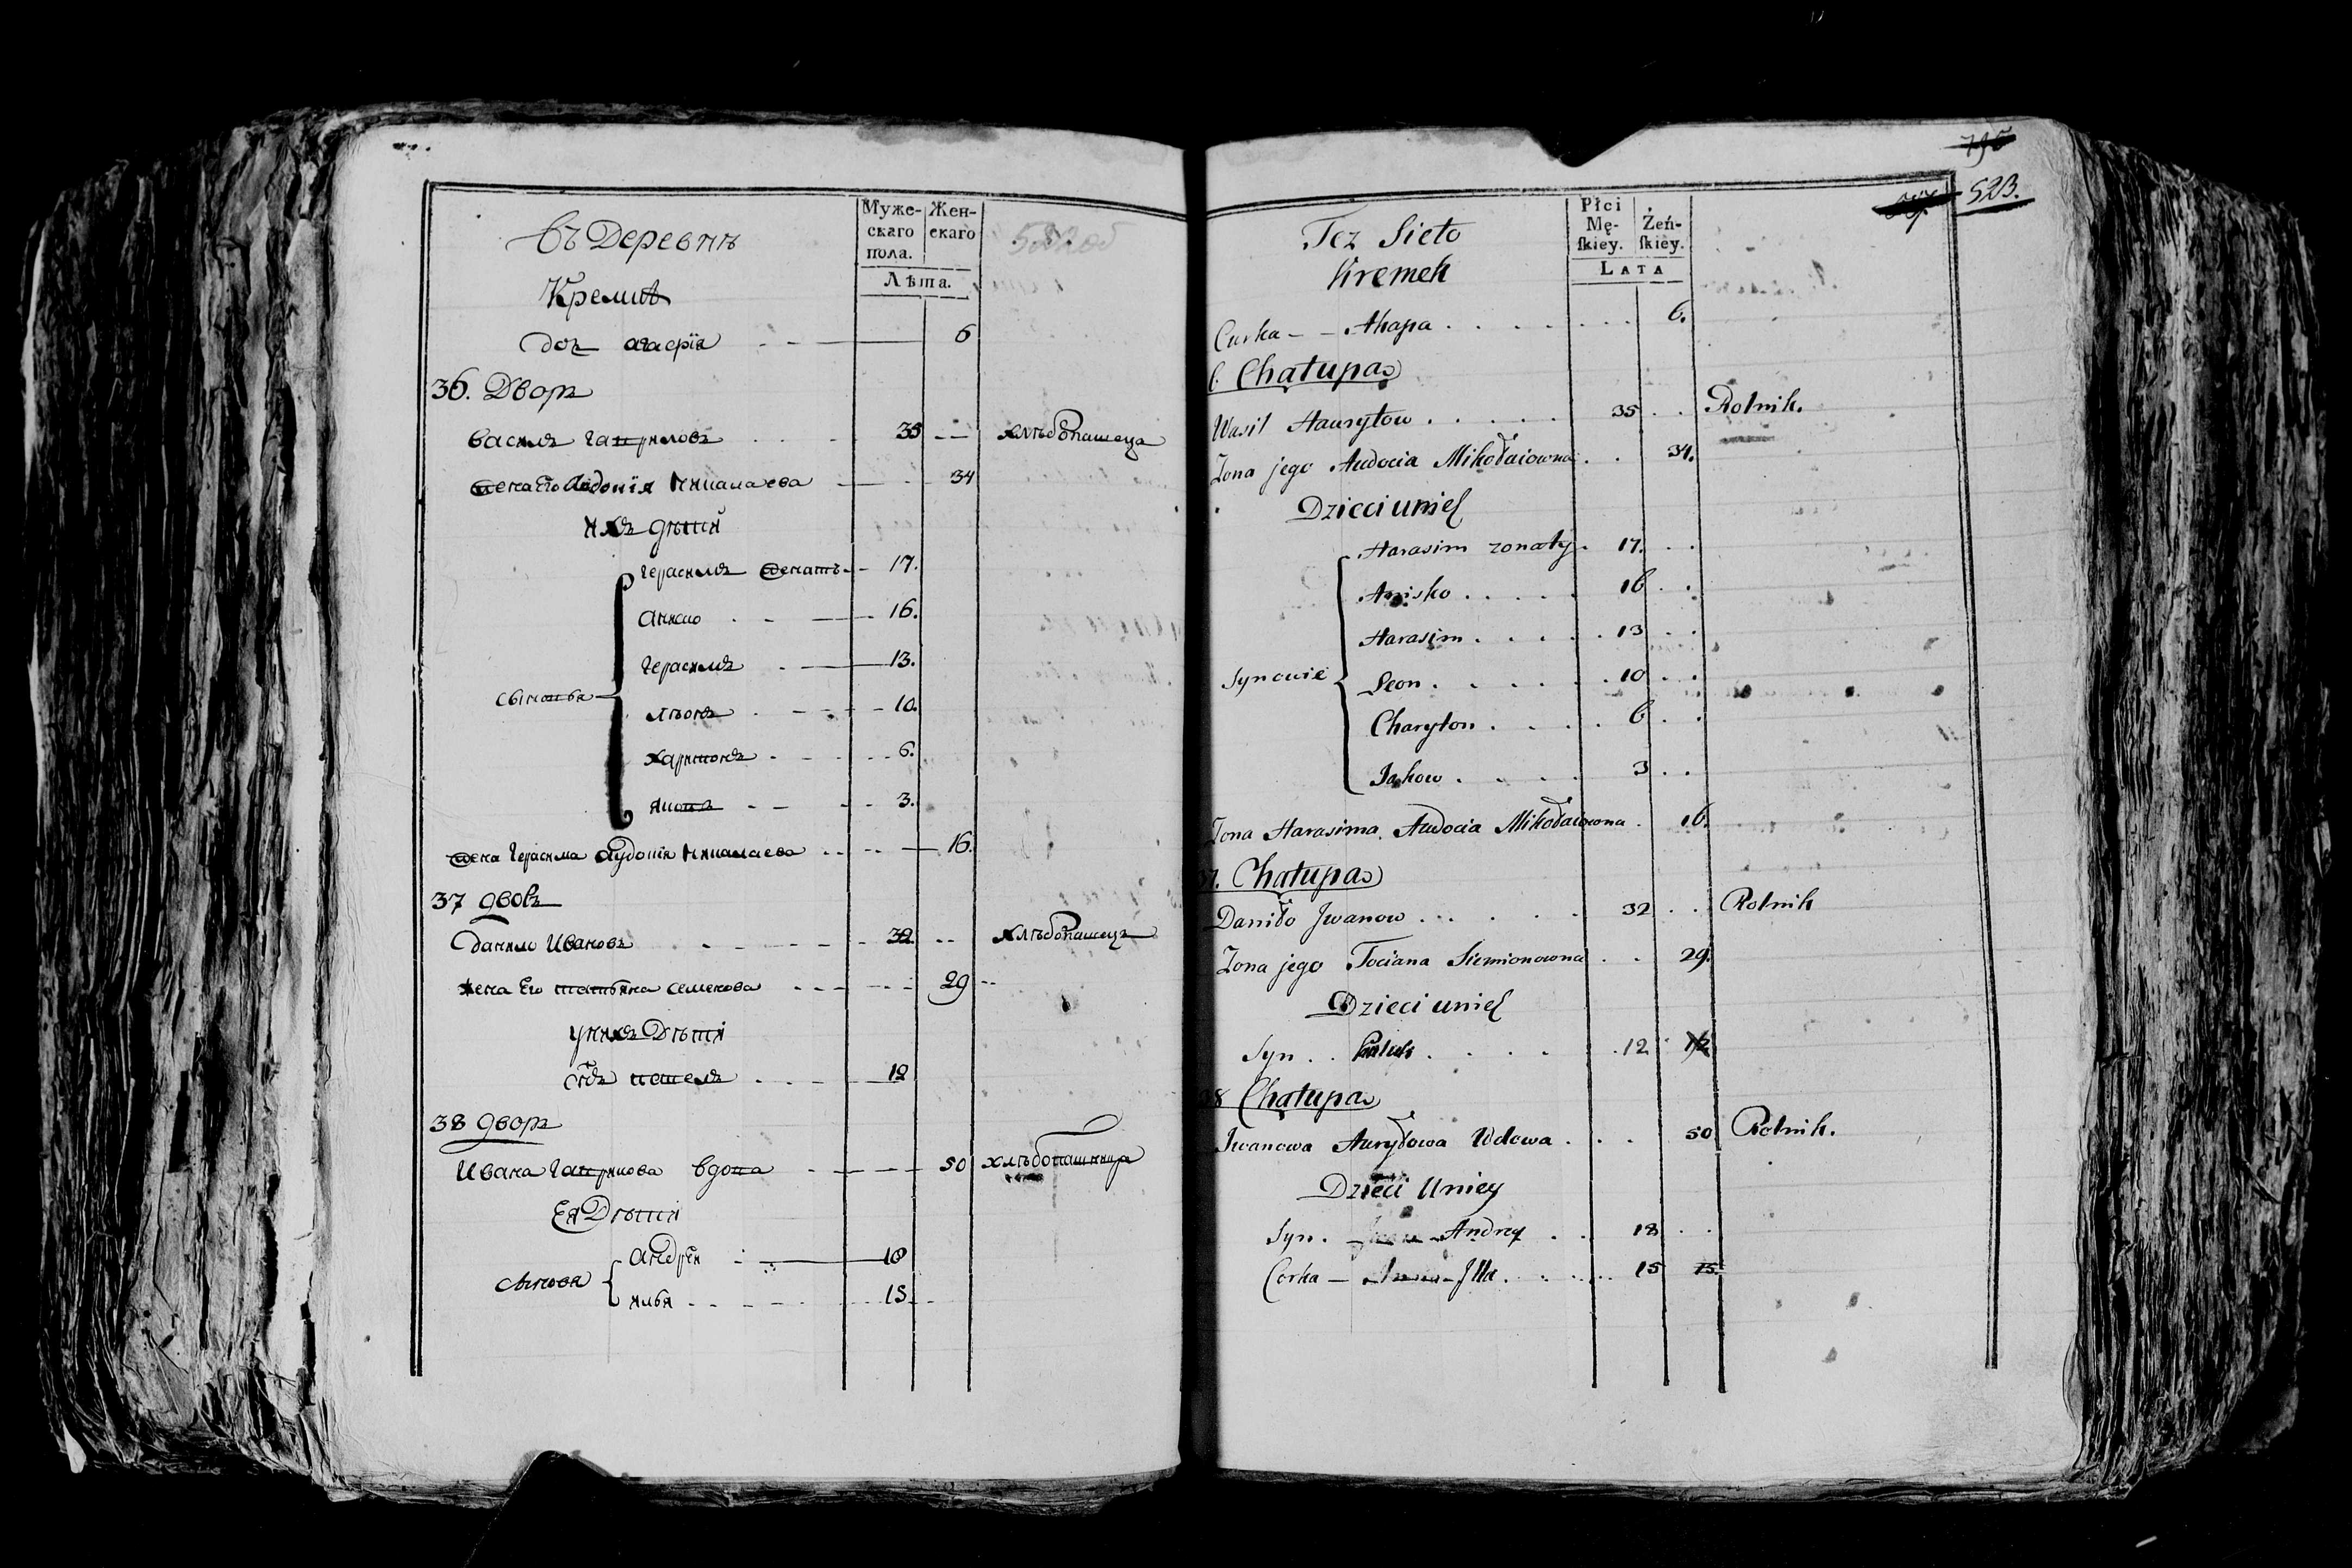 въ Деревнѣ
Муже-
скаго
пола.
Жен-
скаго
Лѣта.
522 об
Кремнѣ
дочъ агаѳрія 6
36. Дворъ
василь гавриловъ 35 хлѣбопашецъ
жена Его Авдотія николаева 34
ихъ дѣти
сыновья
герасимъ женатъ 17.
аниско 16.
герасимъ 13.
лѣонъ 10.
харитонъ 6.
яковъ 3.
жена герасима аудотія николаева 16.
37 дворъ
данило Ивановъ 32 хлѣбопашецъ
жена Его татьяна семенова 29
у нихъ Дѣти
сынъ павелъ 12
38 дворъ
Ивана гаврилова вдова 50
Ея Дѣти
сынова
андрѣй 18
илья 15
796
523.
Też Sieło
Kremek
Płci
Mę-
ſkiey.
Żeń-
ſkiey.
Lata
Curka Ahapa 6.
6. Chałupa
Wasil Hauryłow 35 Rolnik.
Zona jego Audocia Mikołaiowna 34.
Dzieci unich
Synowie
Harasim zonaty 17.
Anisko 16
Harasim 13
Leon 10
Charyton 6
Jakow 3
Zona Harasima Audocia Mikołaiowna 16.
37. Chałupa
Daniło Jwanow 32 Rolnik
Zona jego Tociana Siemionowna 29.
Dzieci unich
Syn 12 12
38 Chałupa
Jwanowa Auryłowa Wdowa 50 Rolnik.
Dzieci Uniey
Syn. Andrey 18
Corka Jlla 15 15.